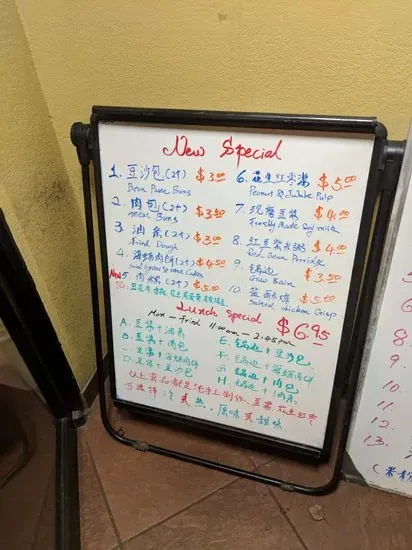 New Special
1. 豆沙包(2个) $3.00
Bean Paste Buns
2. 肉包(2个) $3.50
meat Buns
3. 油条(2个) $3.00
Fried Dough
4. 海蛎肉饼(2个) $4.50
5. 肉粽(2个) $5.00
6. 花生红枣浆 $5.00
Peanut & Jujube Pulp
7. 现磨豆浆 $4.00
Freshly Made Soy milk
8. 红豆紫米粥 $4.00
Red Bean Porridge
9. 锅边 $3.50
Guo Bain
10. 盐酥鸡 $5.00
Salted chicken Crisp
Lunch Special $6.95
Mon - Fried 11:00am - 2:45pm
A. 豆浆 + 油条
B. 豆浆 + 肉包
豆浆 + 海蛎肉饼
D. 豆浆 + 豆沙包
E. 锅边 + 豆沙包
F. 锅边 + 海蛎肉饼
G. 锅边 + 肉包
H. 锅边 + 油条
以上食品都是纯手工制作, 豆浆, 花生红枣
可选择: 冷或热, 原味或甜味
11.
12.
13.
(米粉